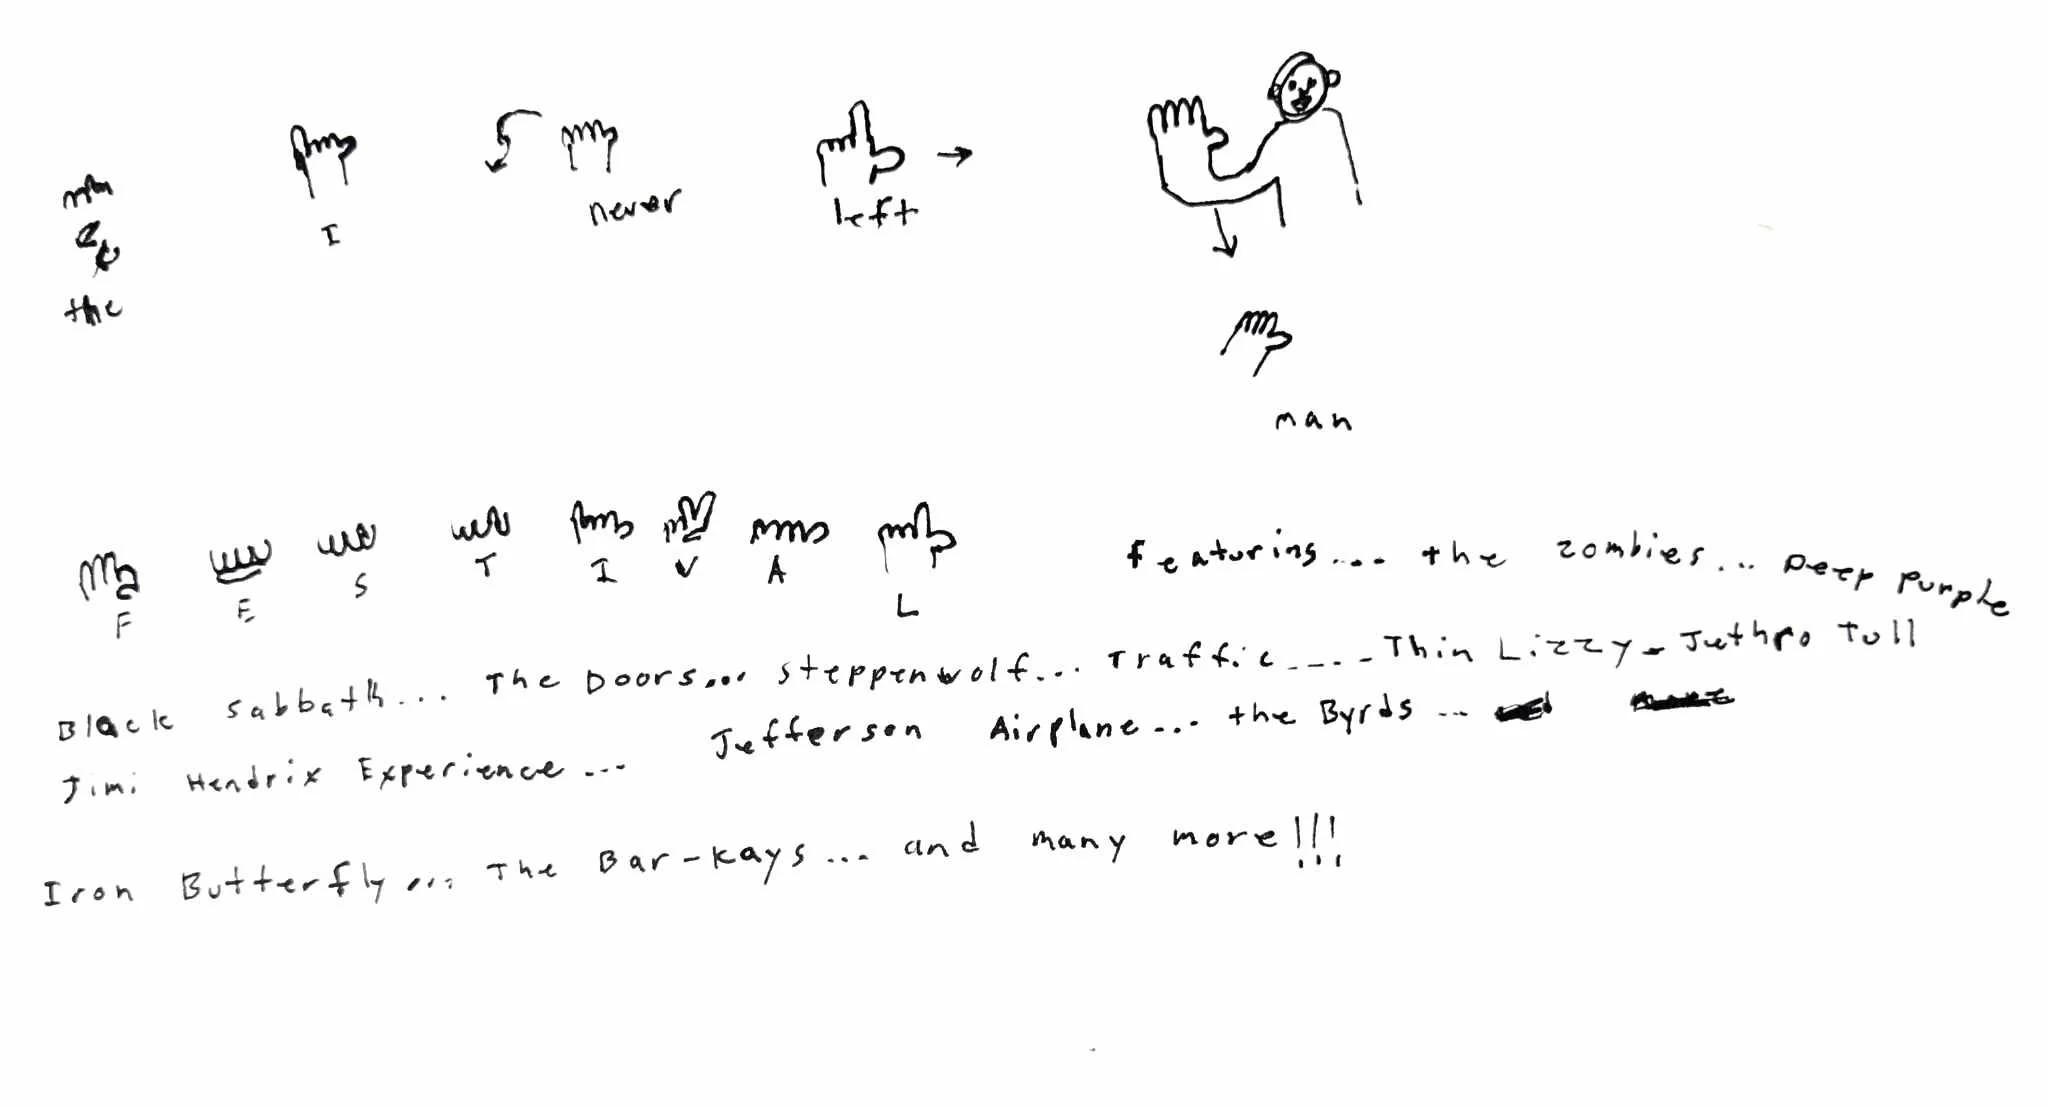 the I never left
man
F E S T I V A L featuring... the zombies... Deep Purple
Black Sabbath... The Doors... Steppenwolf... Traffic..... Thin Lizzy - Jethro Tull
Jimi Hendrix Experience... Jefferson Airplane... the Byrds...
Iron Butterfly... The Bar-kays... and many more!!!